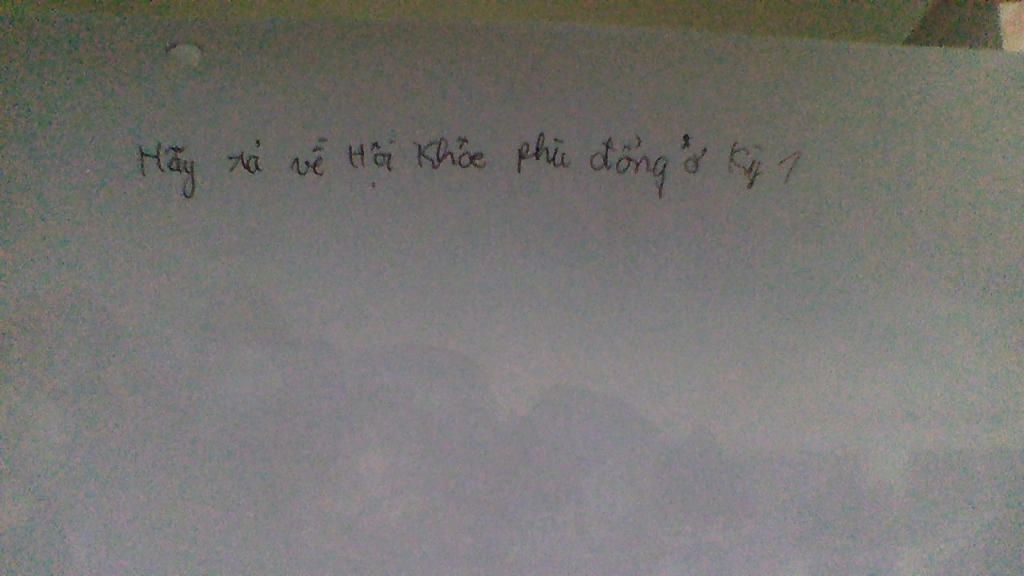 Hãy tả về Hội Khỏe phù đổng ở Kỳ 1